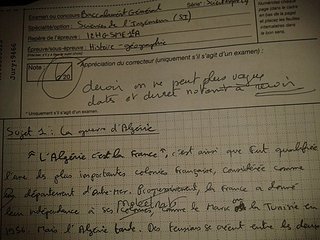 Examen ou concours : Baccalauréat Général
Série* : Scientifique
Spécialité/option : Sciences de l'Ingénieur (SI)
Repère de l'épreuve :
Épreuve/sous-épreuve : Histoire - géographie
Numérotez chaque
page (dans le cadre
en bas de la page)
et placez les feuilles
intercalaires dans
le bon sens.
Note
20
Appréciation du correcteur (uniquement s'il s'agit d'un examen) :
devoir on ne peut plus vague
date et direct notamment à revoir
* Uniquement s'il s'agit d'un examen.
Sujet 1 : La guerre d'Algérie
"L'Algérie c'est la France", c'est ainsi que fut qualifiée
l'une des plus importantes colonies françaises, considérée comme
un département d'outre-mer. Progressivement, la France a donné
leur indépendance à ses colonies, comme le Maroc ou la Tunisie en
1956. Mais l'Algérie tarde. Des tensions se créent entre les deux